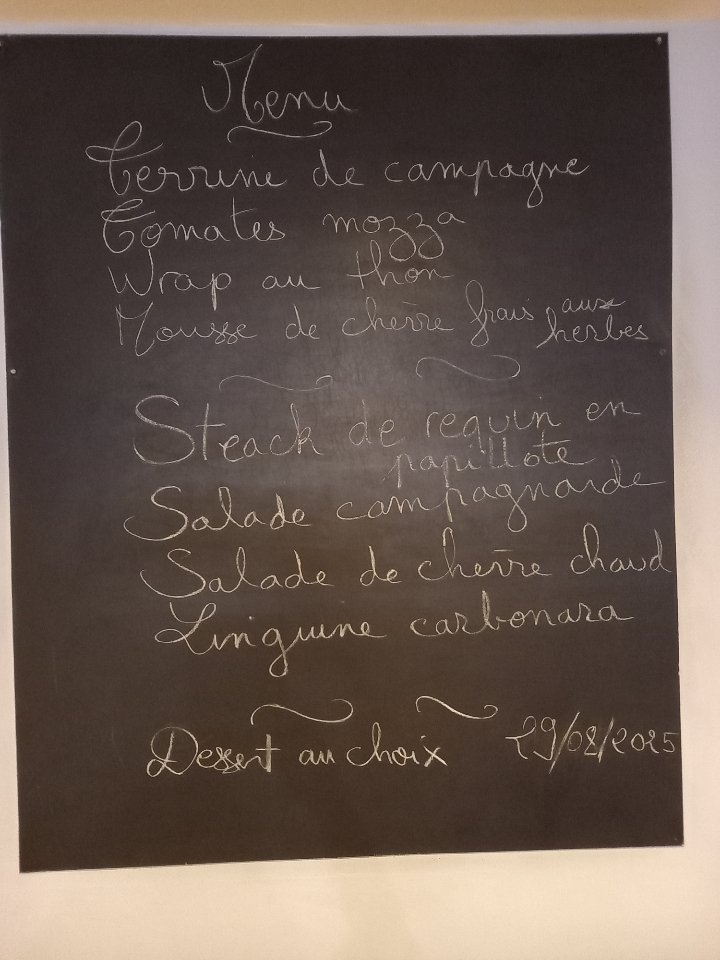 Menu
Terrine de campagne
Tomates mozza
Wrap au thon
Mousse de chèvre frais aux
herbes
Steack de requin en
papillote
Salade campagnarde
Salade de chèvre chaud
Linguine carbonara
Dessert au choix 29/08/2025